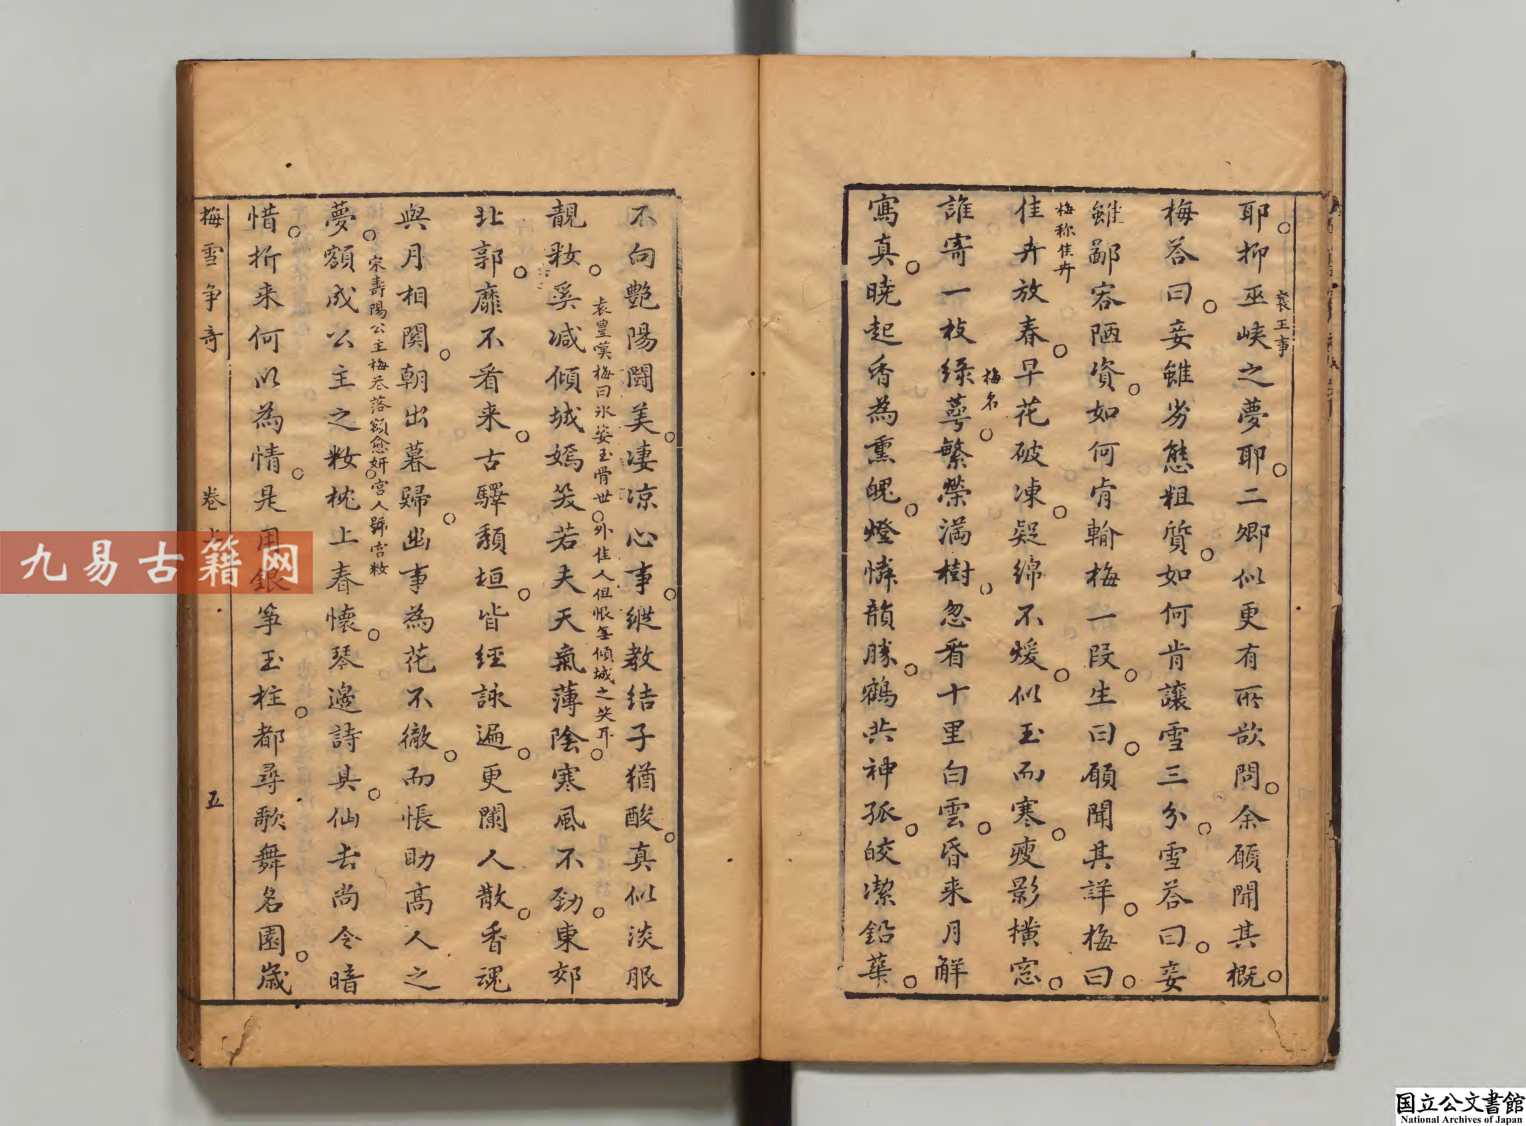 耶抑巫峽之夢耶二卿似更有所欲問余願聞其概
襄王事
梅荅曰妾雖劣態粗質如何肯讓雪三分雪荅曰妾
雖鄙容陋資如何肯輸梅一段生曰願聞其詳梅曰
梅称佳卉
佳卉放春早花破凍疑綿不煖似玉而寒瘦影橫窓
誰寄一枝綠萼繁榮滿樹忽看十里白雲昏来月解
梅名
寫真曉起香為熏魄燈憐韻勝鶴共神孤皎潔鉛華
不向艷陽鬪美凄凉心事縱教結子猶酸真似淡服
靚粧奚减傾城嫣笑若夫天氣薄陰寒風不勁東郊
袁豊嘆梅曰氷姿玉骨世外佳人但恨無傾城之笑耳
北郭靡不看来古驛頽垣皆經詠遍更闌人散香魂
與月相関朝出暮歸幽事為花不徹而悵助高人之
宋壽陽公主梅花落額愈妍宮人號宮粧
夢額成公主之粧枕上春懷琴邊詩具仙去尚令暗
惜折来何以為情是用銀箏玉柱都尋歌舞名園歲
梅雪争奇
卷
五
九易古籍网
国立公文書館
National Archives of Japan